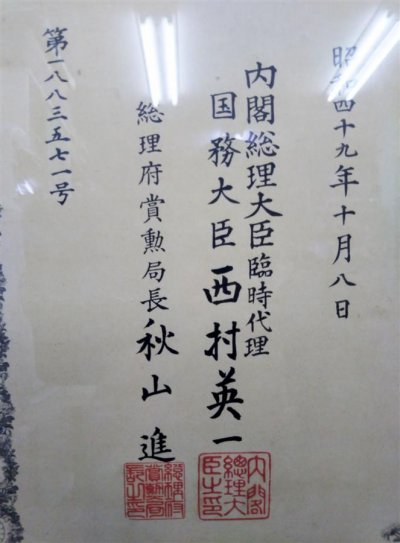 昭和四十九年十月八日
内閣総理大臣臨時代理
国務大臣 西村英一
総理府賞勲局長 秋山 進
第一八八三五七一号
内閣
総理大
臣之印
総理府
賞勲局
長之印